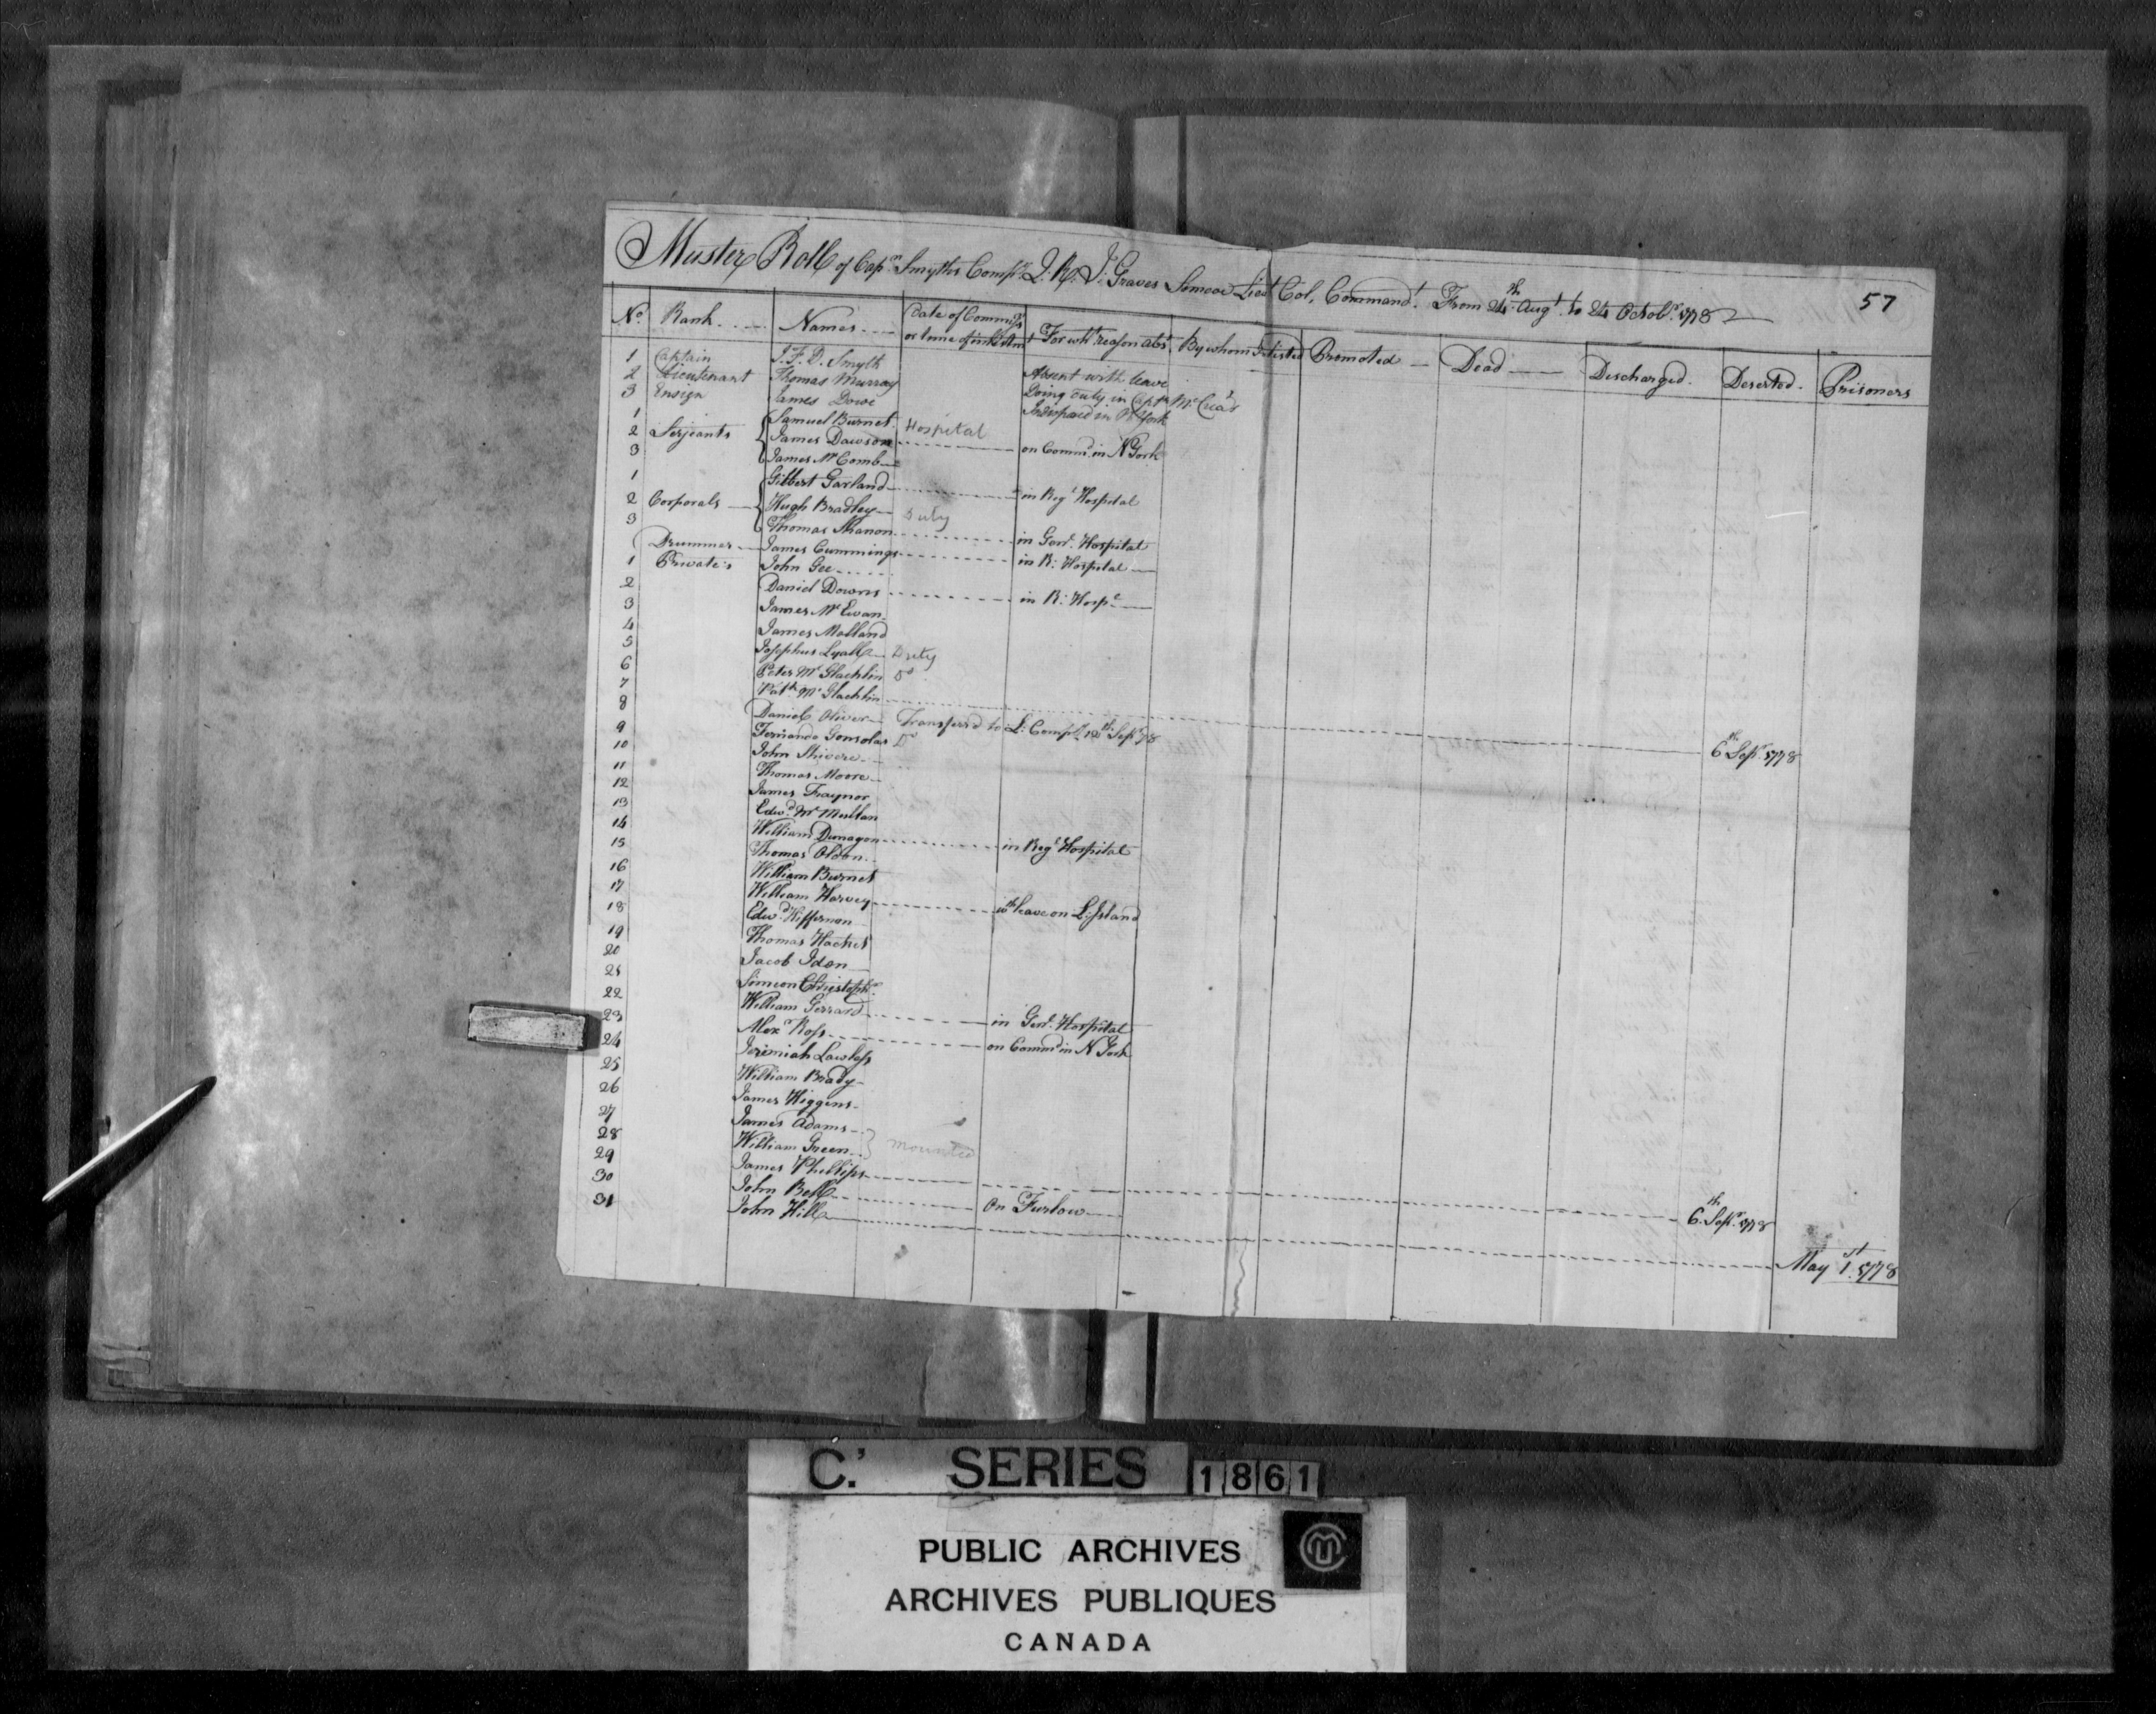 57
Muster Roll of Capn Smyths Compy Q. R. J. Graves Simcoe Lieut Col. Commandt. From 24th Augt. to 24 Octobr. 1778
No. Rank Names Date of Commissn or time of inlistmt For wht reason abst. By whom Inlisted Promoted Dead Discharged. Deserted. Prisoners
1 Captain J. F. D. Smyth Absent with leave
2 Lieutenant Thomas Murray Doing duty in Captn McCrea's
3 Ensign James Dowe Indisposed in N York
1 Samuel Burnet Hospital
2 Serjeants James Dawson on Commd. in N York
3 James McComb
1 Gilbert Garland in Regl Hospital
2 Corporals Hugh Bradley Duty
3 Thomas Shanon in Genl. Hospital
Drummer James Cummings in R: Hospital
1 Private's John Gee
2 Daniel Downs in R: Hospl
3 James McEwan
4 James Molland
5 Josephus Lyall Duty
6 Peter McGlachlin Do
7 Patk. McGlachlin 6th Sepr. 1778
8 Daniel Oliver Transferd to L: Compy. 12th Sepr 78
9 Fernando Gonsolas Do
10 John Shivere
11 Thomas Moore
12 James Traynor
13 Edwd. McMullan
14 William Dunagon in Regl Hospital
15 Thomas Oldon
16 William Burnet
17 William Harvey wth leave on L: Island
18 Edwd. Hiffernon
19 Thomas Hacket
20 Jacob Iden
21 Simeon Christophr
22 William Gerrard in Genl. Hospital
23 Alexr Ross on Commd in N York
24 Jerimiah Lawless
25 William Brady
26 James Higgens
27 James Adams
28 William Green mounted
29 James Phillips 6th. Sepr. 1778
30 John Bell On Furlow
31 John Hill May 1st. 1778
C.' SERIES 1861
PUBLIC ARCHIVES
ARCHIVES PUBLIQUES
CANADA